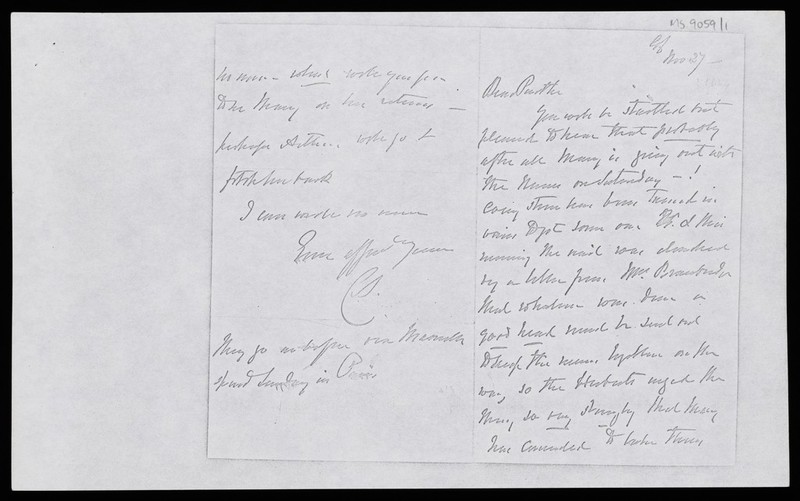 MS 9059/1
Nov 27 -
Dear Parthe
You will be startled but
pleased to hear that probably
after all Mary is going out with
the Nurses on Saturday - !
every stone has been turned in
vain to get some one & this
morning the nail was clenched
by a letter from Mrs. Bracebridge
that whatever was done a
good head must be sent out
to keep the nurses together on the
way, so the Herberts urged the
thing so very strongly that Mary
has consented to take them
to the Mary on her return -
perhaps Arthur will go &
fetch her back
I can write no more
Ever affect. yours
They go
spend Sunday in Paris